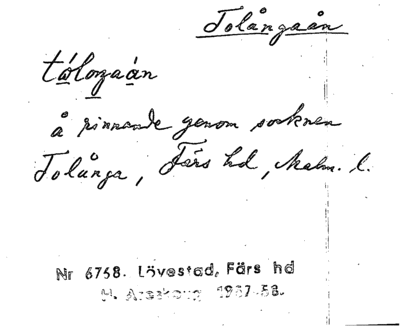 Tolångaån
tålongaán
å rinnande genom socknen
Tolånga, Färs hd, Malm. l.
Nr 6758. Lövestad, Färs hd
H. Areskoug 1957-58.